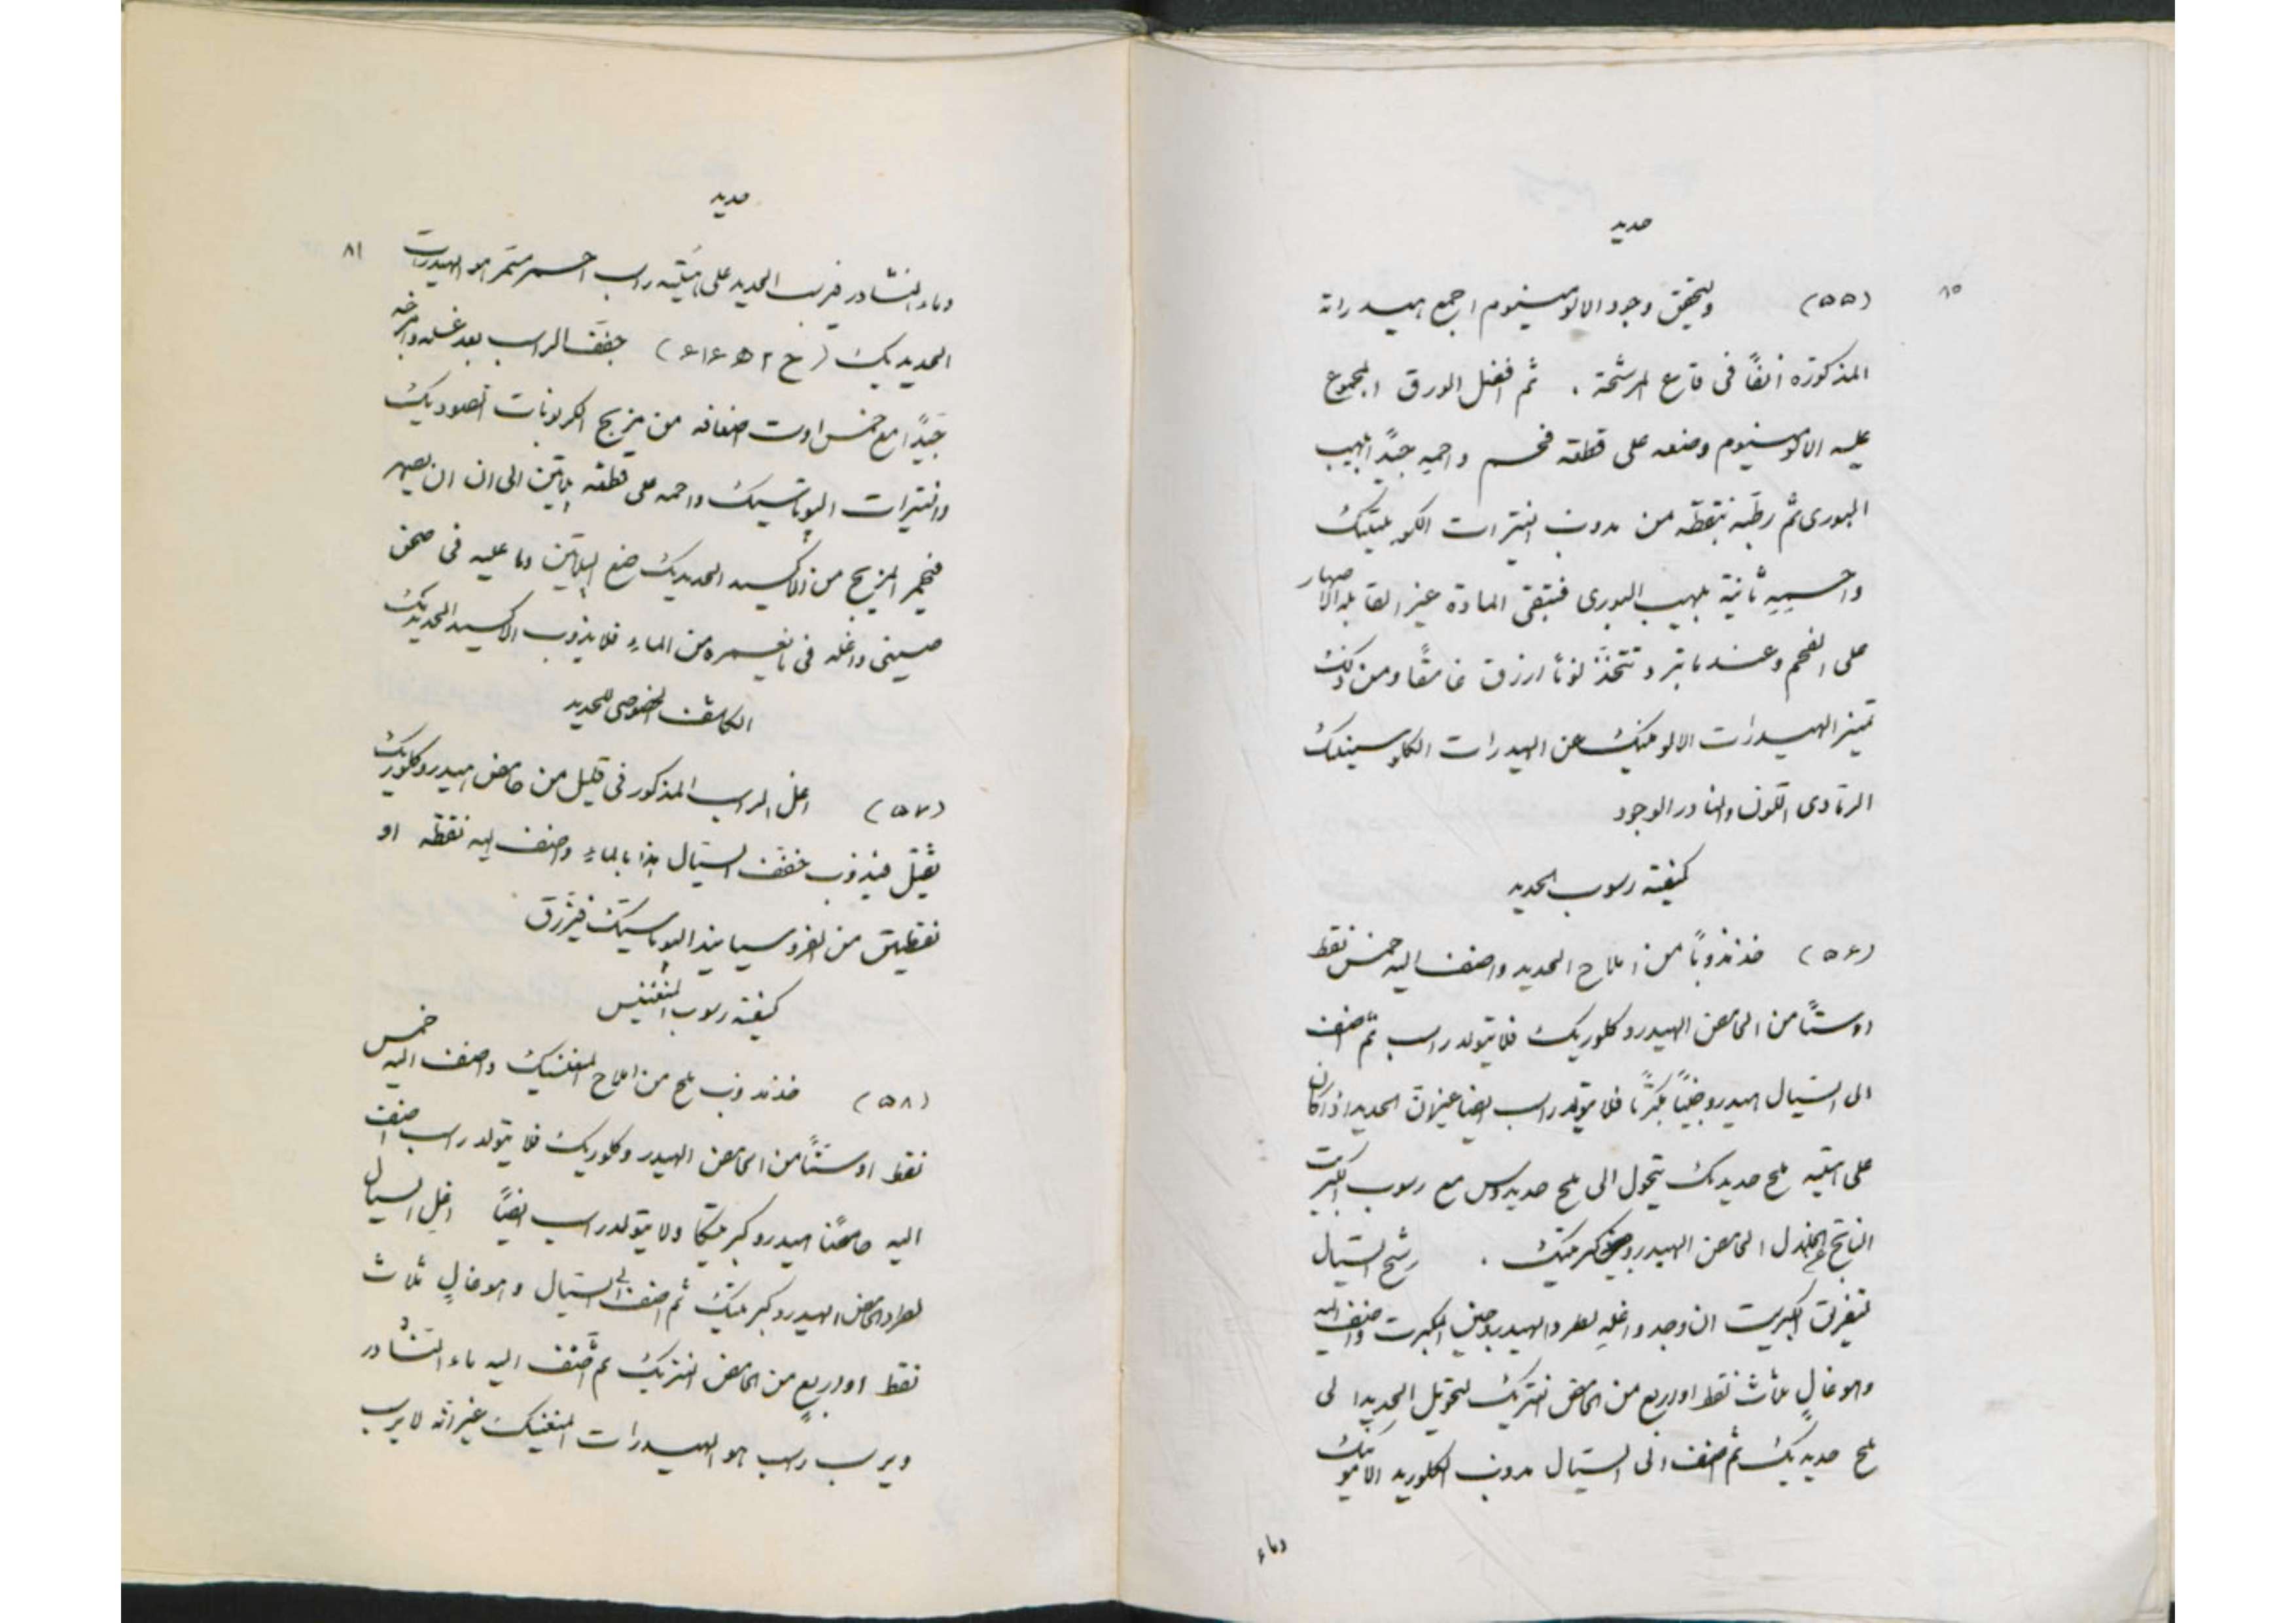 حديد
٨٥
(٥٥) ولتحقق وجود الالومينيوم اجمع هيدراته
المذكورة آنفاً فى قاع المرشحة . ثم افصل الورق المجموع
عليه الالومينيوم وضعه على قطعة فحم واحمه جيداً بلهيب
البورى ثم رطبه بنقطة من مذوب النترات الكوبلتيك
واحميه ثانية بلهيب البورى فتبقى المادة غير القابله الانصهار
على الفحم وعندما تبرد تتخذ لوناً ازرق غامقاً ومن ذلك
تميز الهيدرات الالومنيك عن الهيدرات الكلوسينيك
الرمادى اللون والنادر الوجود
كيفية رسوب الحديد
(٥٦) خذ مذوباً من املاح الحديد واضف اليه خمس نقط
اوستاً من الحامض الهيدروكلوريك فلا يتولد راسب ثم اضف
الى السيال هيدروجيناً مكبرتاً فلا يتولد راسب ايضا غيران الحديد اذا كان
على هيئة ملح حديديك يتحول الى ملح حديدوس مع رسوب الكبريت
الناتج عن انحلال الحامض الهيدروكبريتيك . رشح السيال
لتفريق الكبريت ان وجد واغله لطرد الهيدروجين المكبرت واضف اليه
وهو غالٍ ثلاث نقط او اربع من الحامض نتريك لتحويل الحديد الى
ملح حديديك ثم اضف الى السيال مذوب الكلوريد الامونيك
وماء
حديد
٨١
وماء النشادر فيرسب الحديد على هيئة راسب احمر مسمر هو الهيدرات
الحديديك (ح٢ ھ٦ ا٦) جفف الراسب بعد غسله وامزجه
جيداً مع خمس اوست اضعافه من مزيج الكربونات الصوديك
والنترات البوتاسيك واحمه على قطعة بلاتين الى ان ان يصهر
فيحمر المزيج من الاكسيد الحديديك ضع البلاتين وما عليه فى صحن
صينى واغله فى ما يغمره من الماء فلا يذوب الاكسيد الحديديك
الكاشف الخصوصى للحديد
(٥٧) اغل الراسب المذكور فى قليل من حامض هيدروكلوريك
ثقيل فيذوب خفف السيال هذا بالماء واضف اليه نقطة او
نقطتين من الفروسيانيد البوتاسيك فيزرق
كيفية رسوب المنغنيس
(٥٨) خذ مذوب ملح من املاح المنغنيك واضف اليه خمس
نقط اوستاً من الحامض الهيدروكلوريك فلا يتولد راسب اضف
اليه حامضا هيدروكبريتيكا ولا يتولد راسب ايضاً اغل السيال
لطرد الحامض الهيدروكبريتيك ثم اضف الى السيال وهو غالٍ ثلاث
نقط او اربع من الحامض النتريك ثم اضف اليه ماء النشادر
ويرسب راسب هو الهيدرات المنغنيك غير انه لا يرسب